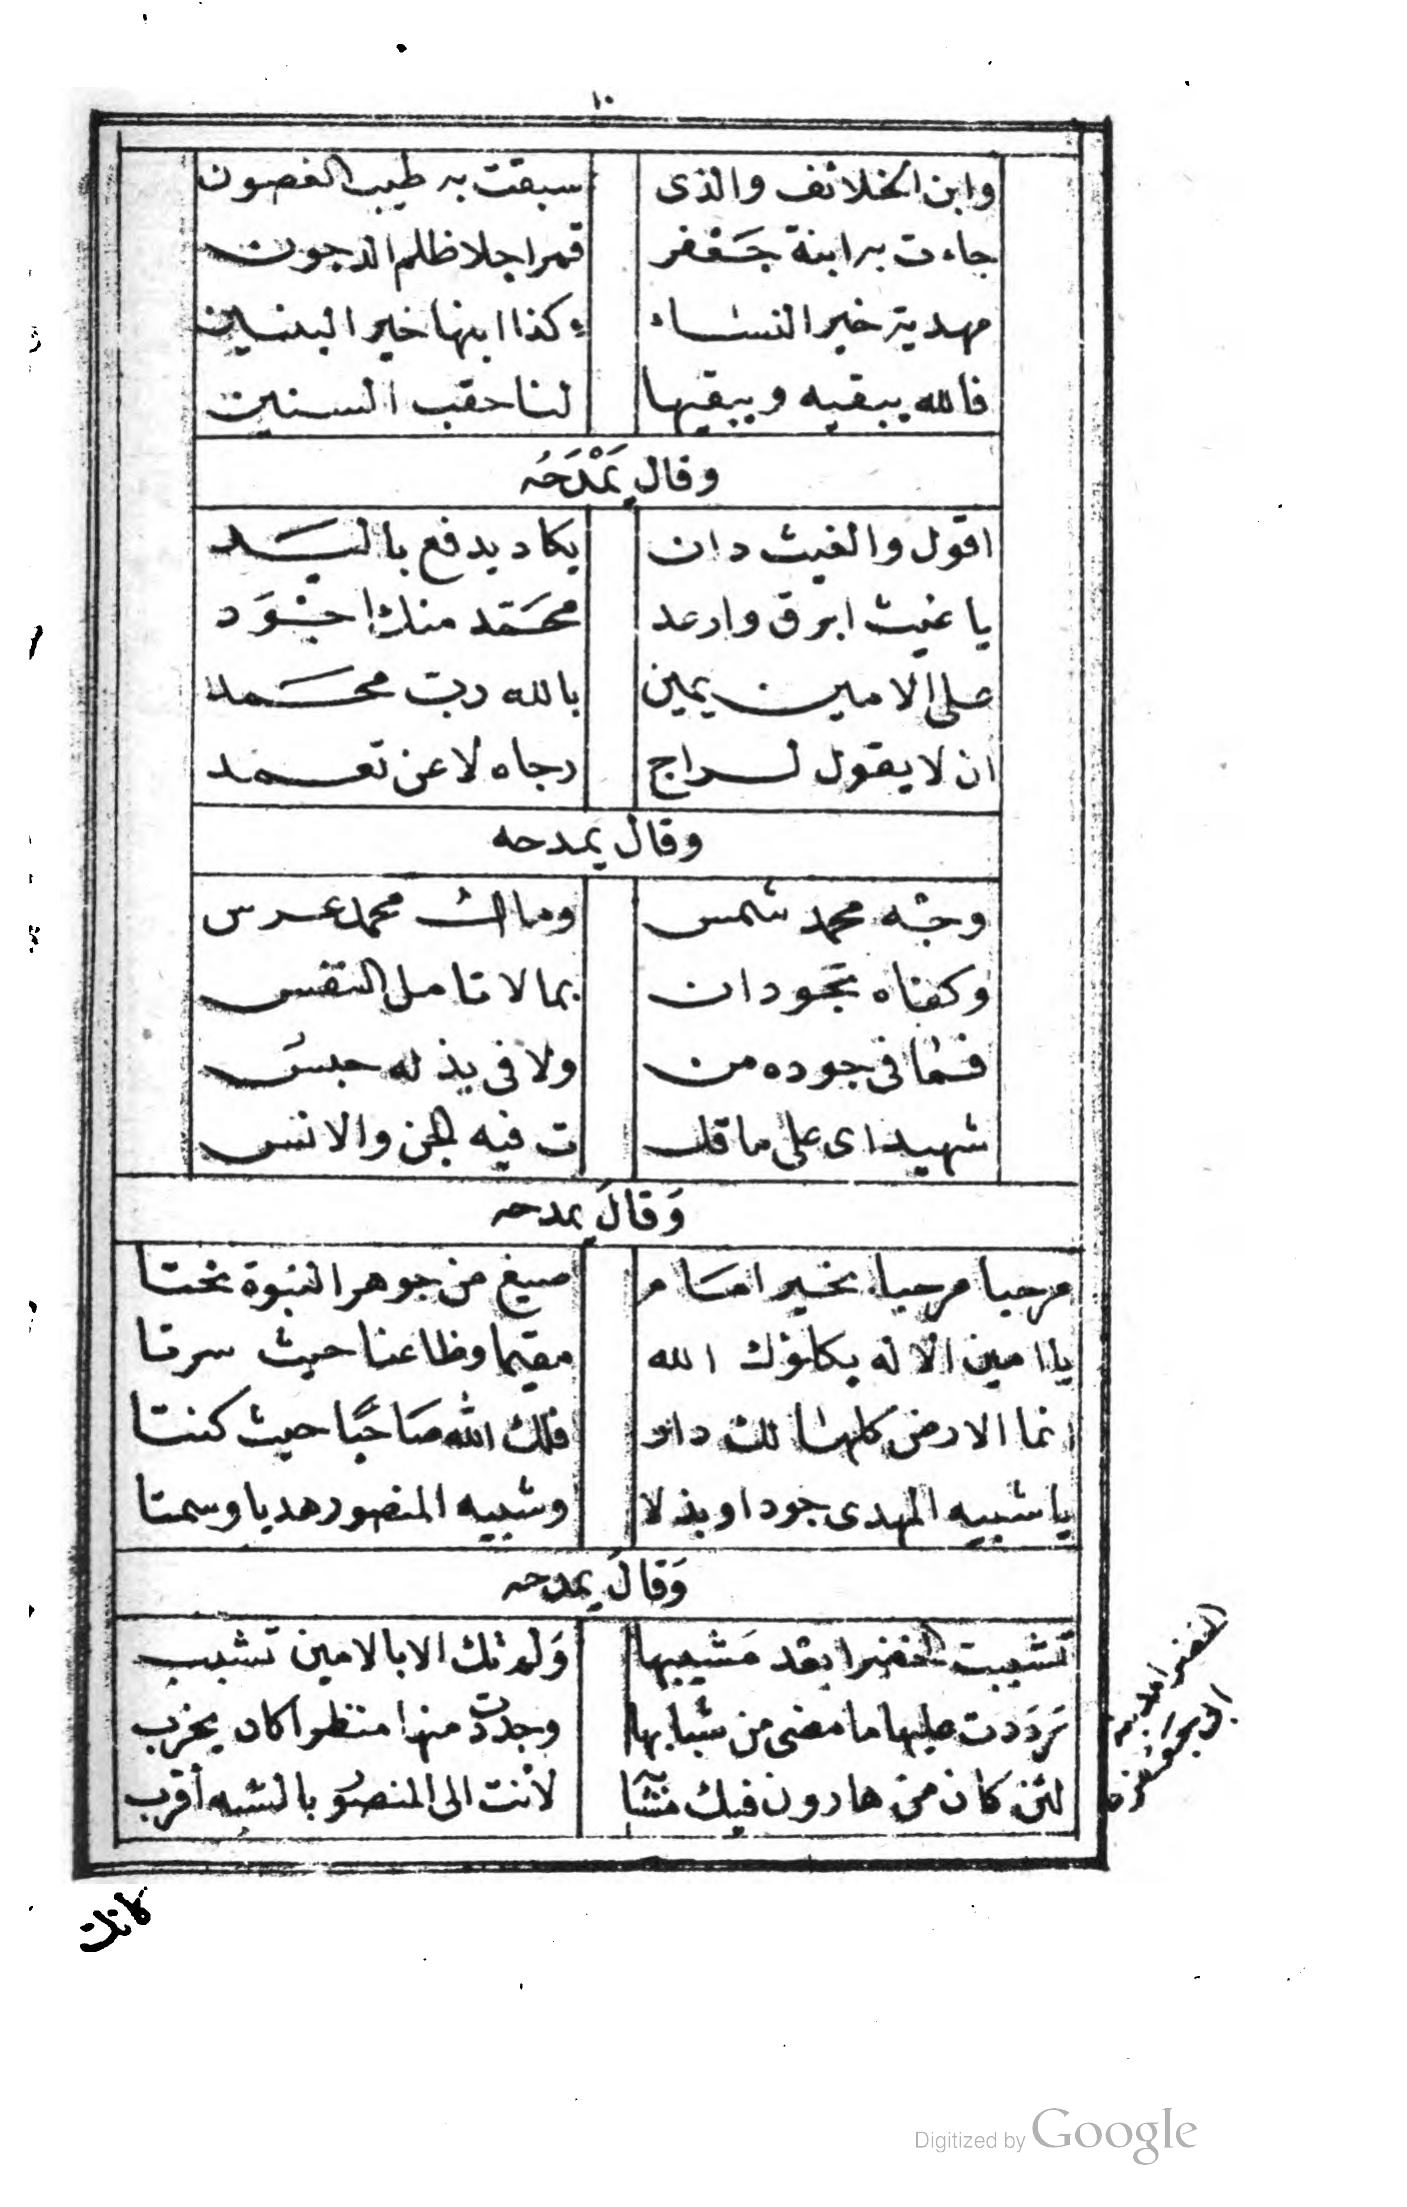 ١٠
وابن الخلائف والذى سبقت به طيب الغصون
جاءت به ابنة جَعْفر قمرا جلا ظلم الدجون
مهدية خير النساء ء كذا ابنها خير البنين
فالله يبقيه ويبقيها لنا حقب السنين
وقال يَمْدَحُه
اقول والغيث دان يكاد يدفع باليَد
يا غيث ابرق وارعد محَمّد منك اجْوَد
على الامين يمين بالله ربّ محَمد
ان لا يقول لراج رجاه لا عن تعمد
وقال يمدحه
وجْه محمد شمس وماك محمد عرس
وكفاه تجودان بما لا تامل النفس
فما فى جوده من ولا فى بذله حبسُ
شهيداى على ما قل ت فيه الجن والانس
وَقالَ يمدحه
مرحبا مرحبا بخير امَام صيغ من جوهر النبوة نحتا
يا امين الاله يكلؤك الله مقيما وظاعنا حيث سرتا
انما الارض كلها لك دار فلك الله صَاحبًا حيث كنتا
يا شبيه المهدى جودا وبذلا وشبيه المنصور هديا وسمتا
وَقالَ يمدحه
تشببت الخضرا بعد مَشيبها وَلم تك الا بالامين تشبب
رَدَدت عليها ما مضى من شبابها وجددت منها منظرا كاد يخرب
لئن كان من هارون فيك مَشآ لأنت الى المنصُو بالشبه أقرب
الخضرا مدينة
ابى جَعفر
كانت
Digitized by Google